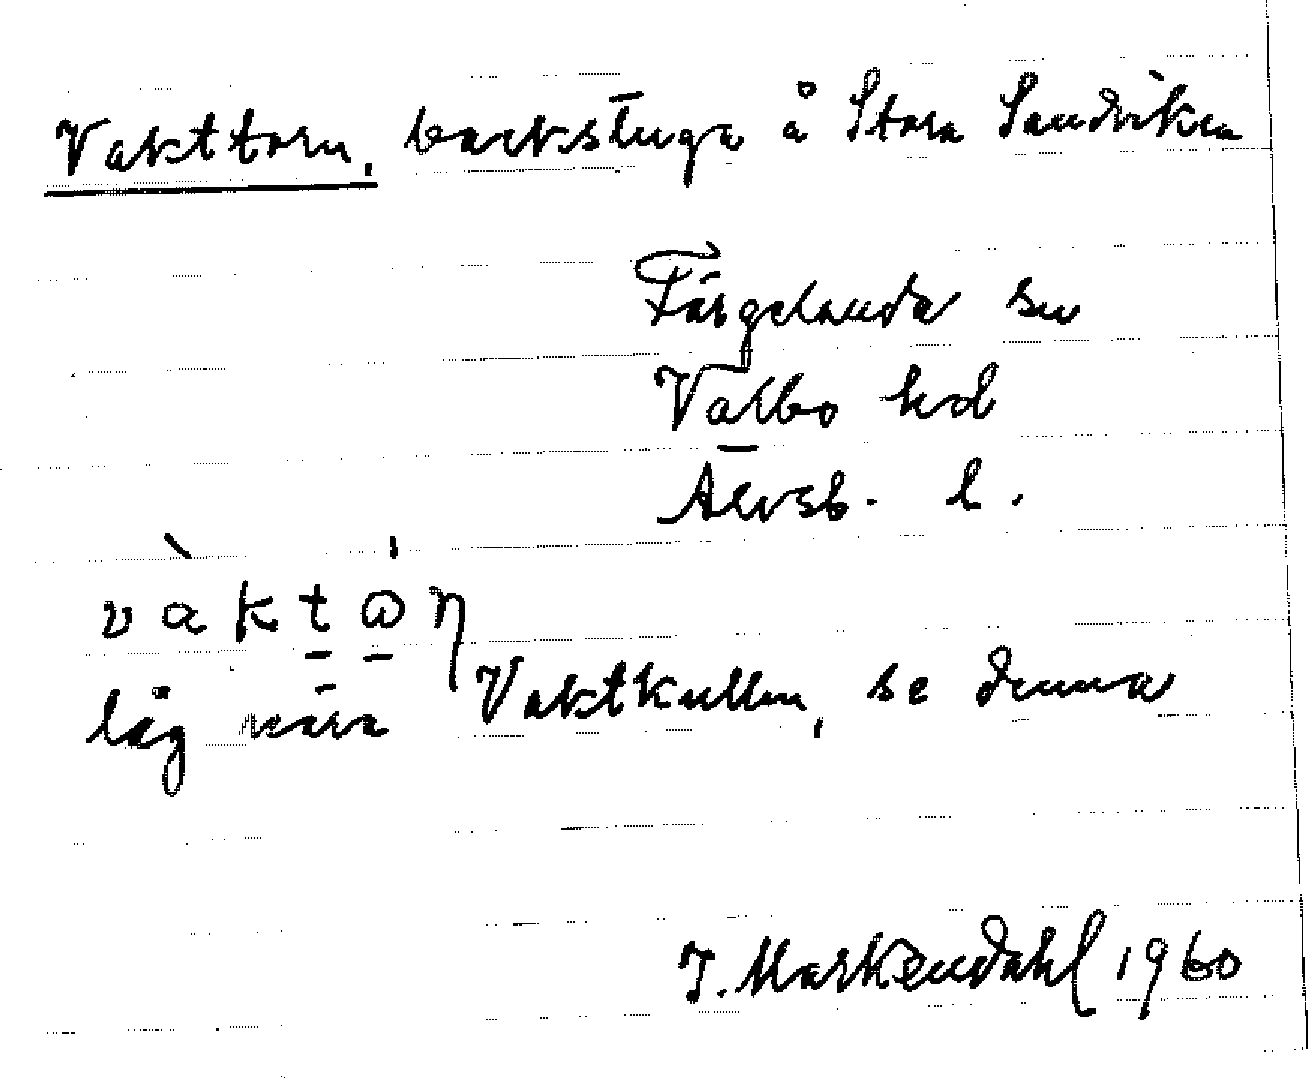 Vakttorn, backstuga å Stora Sandviken
Färgelanda sn
Valbo hd
Älvsb. l.
låg nära Vaktkullen, se denna
J. Markendahl 1960